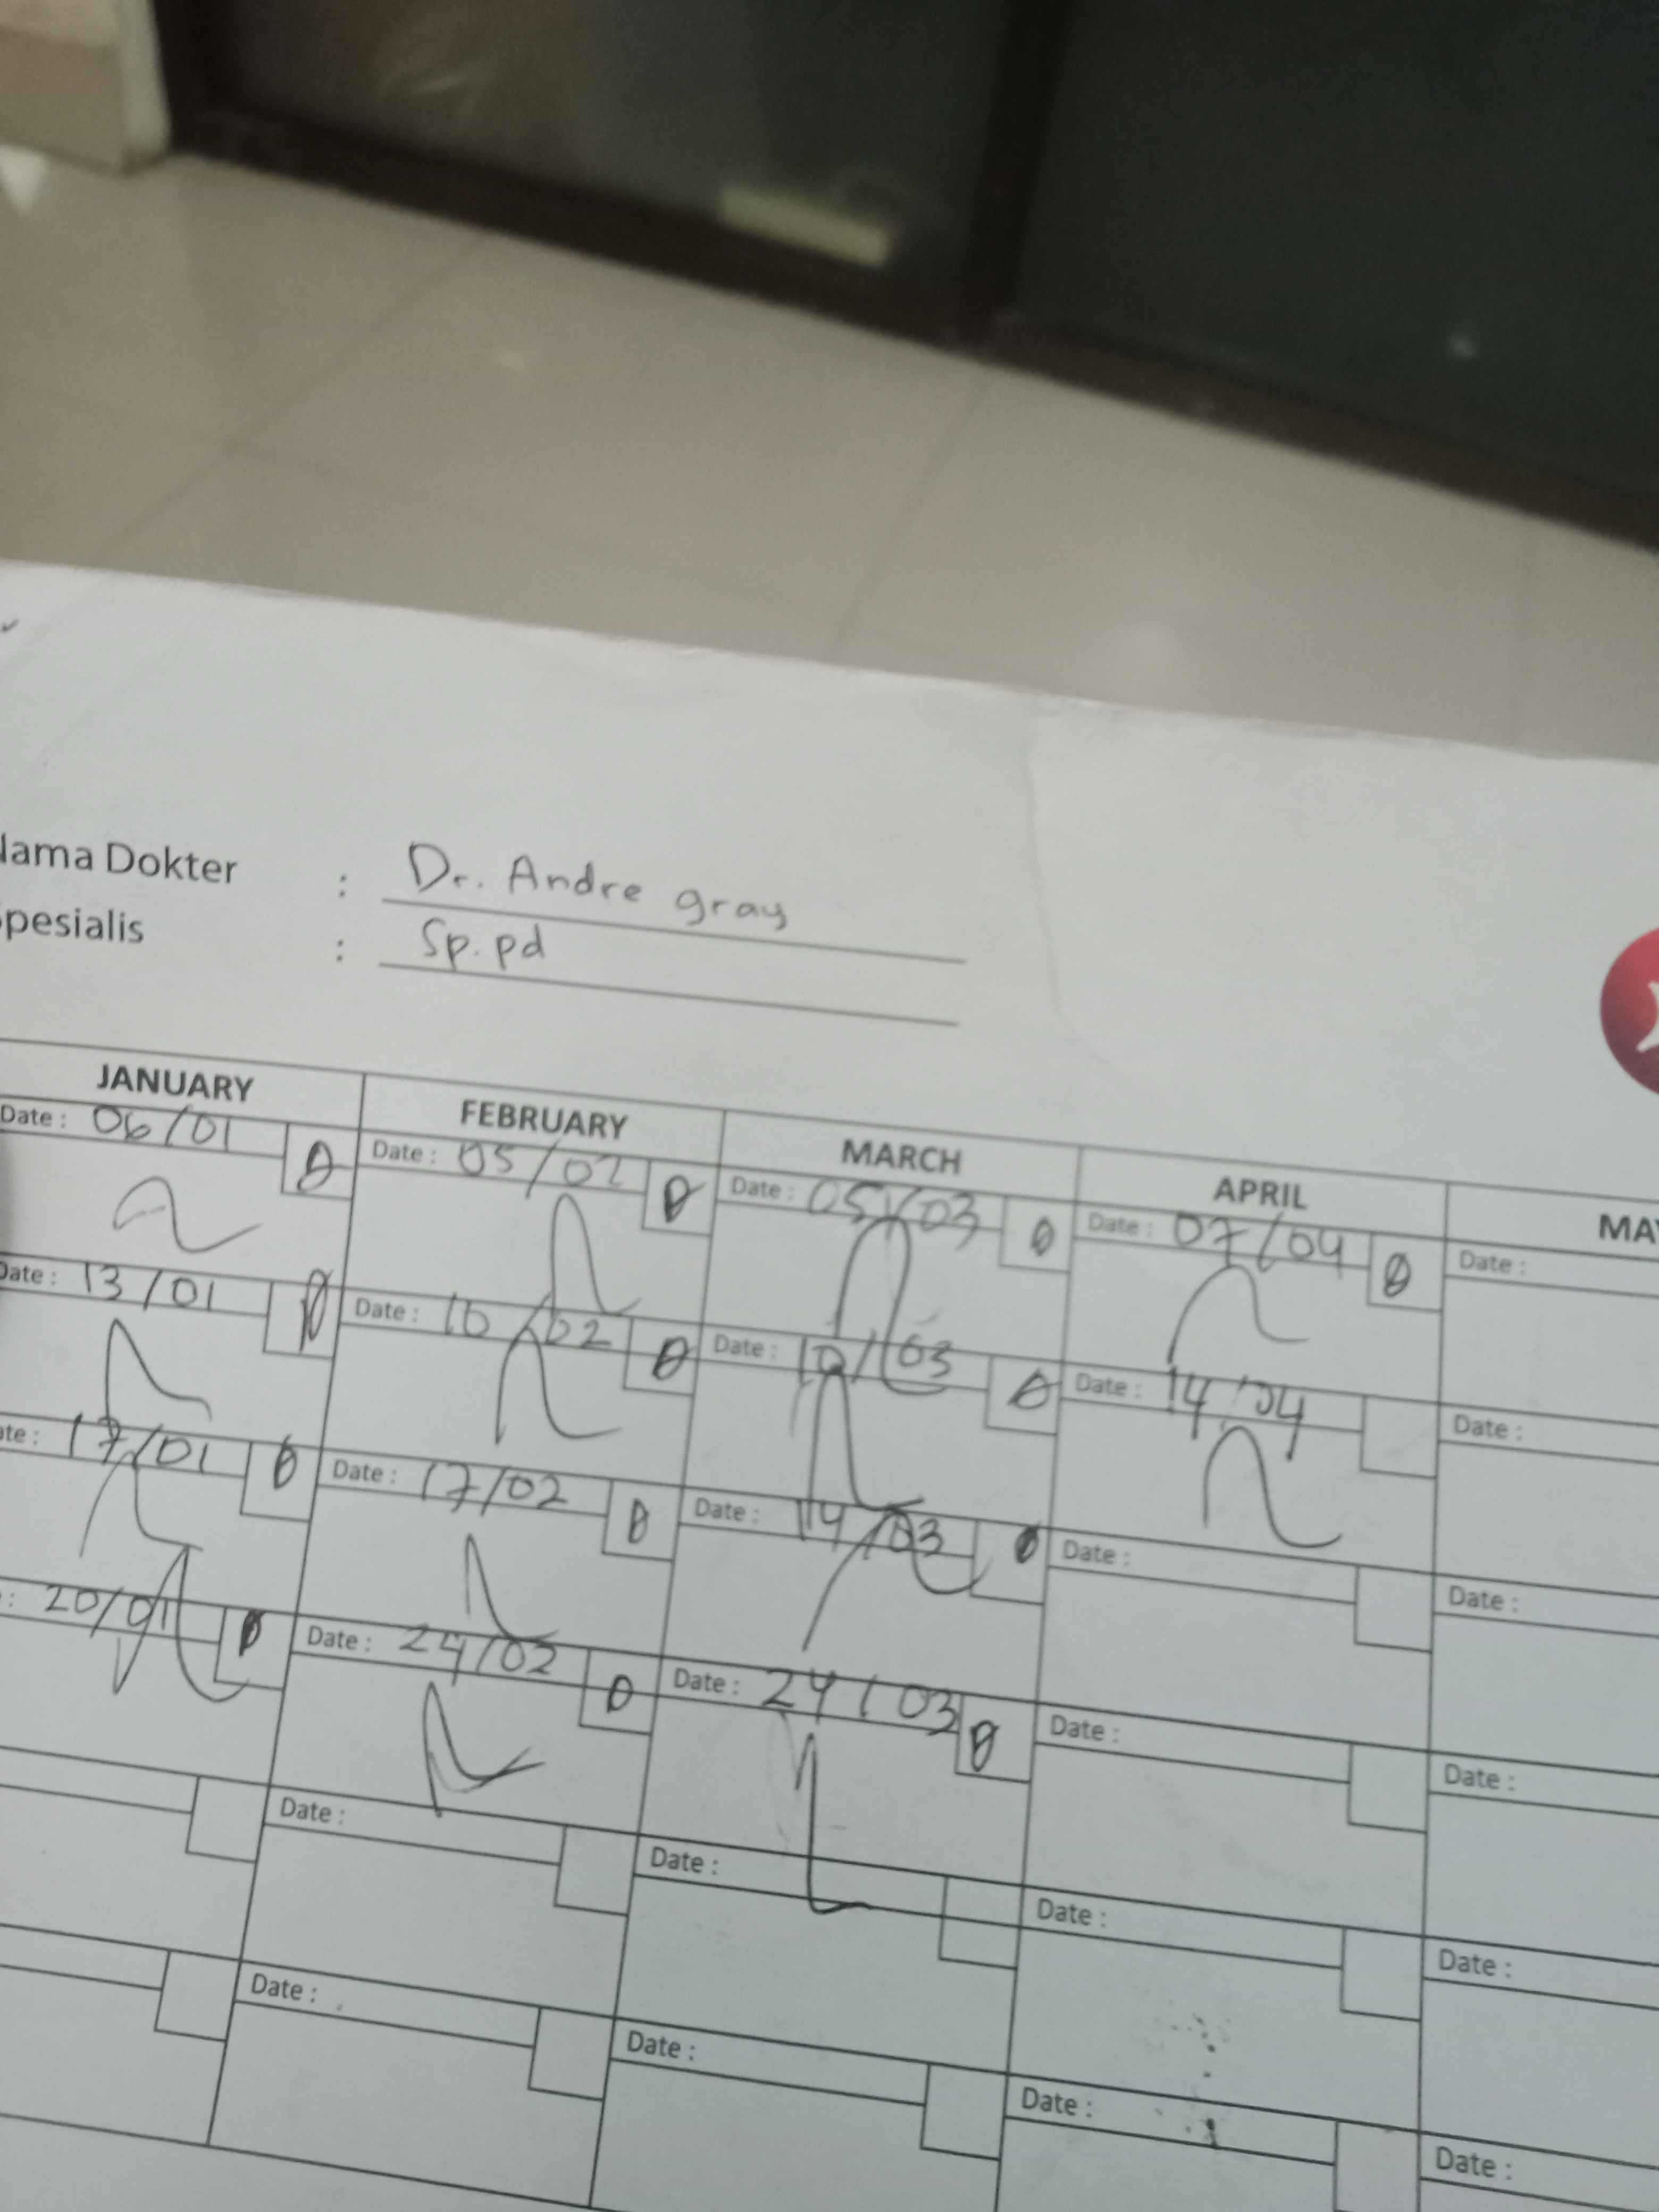 Nama Dokter : Dr. Andre gray
Spesialis : Sp.pd
JANUARY FEBRUARY MARCH APRIL
Date : 06/01 Date : 05/02 Date : 05/03 Date : 07/04 Date :
Date : 13/01 Date : 10/02 Date : 10/03 Date : 14/04 Date :
Date : 17/01 Date : 17/02 Date : 14/03 Date : Date :
: 20/01 Date : 24/02 Date : 24/03 Date : Date :
Date : Date : Date : Date :
Date : Date : Date : Date :